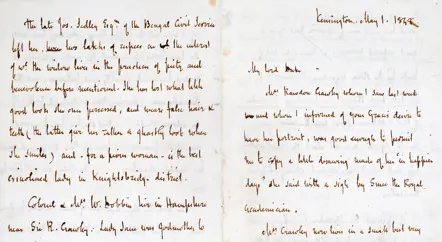 The late Jos. Sedley Esqre. of the Bengal Civil Service
left her two lakhs of rupees on the interest
of wh the widow lives in the practices of piety and
benevolence before mentioned. She has lost what little
good looks she once possessed, and wears false hair &
teeth (the latter give her rather a ghastly look when
she smiles) and - for a pious woman - is the best
crinolined lady in Knightsbridge district.
Colonel & Mrs. W. Dobbin live in Hampshire
near Sir R. Crawley. Lady Jane was godmother to
Kensington. May 1.
My lord
Mrs. Rawdon Crawley whom I saw last week
and whom I informed of your Graces desire to
have her portrait, was good enough to permit
me to copy a little drawing made of her 'in happier
days' she said with a sigh by Smee the Royal
Academician.
Mrs Crawley now lives in a small but very